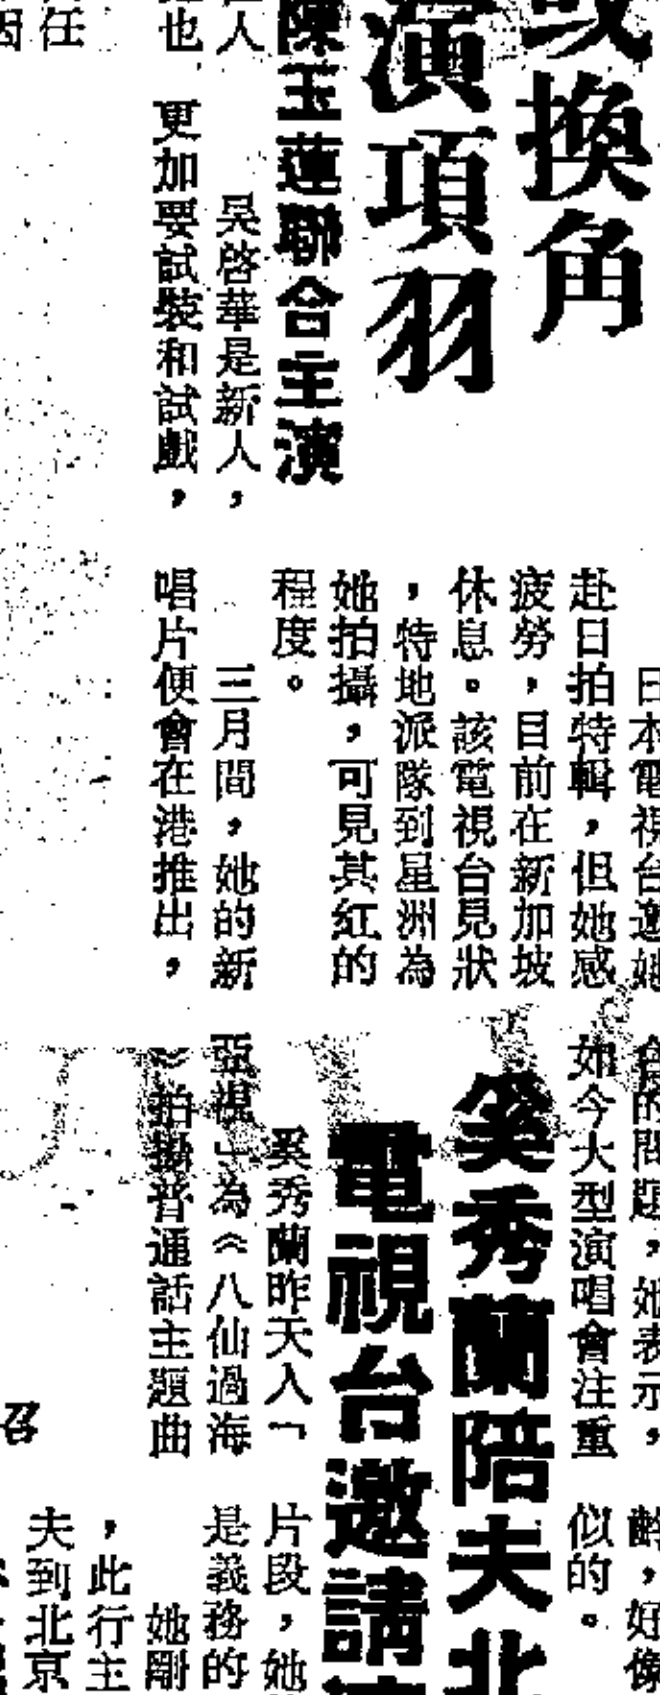 換角
演項羽
陳玉蓮聯合主演
吳啓華是新人，
更加要試裝和試戲，
人
也
任
因
日本電視台邀她
赴日拍特輯，但她感
疲勞，目前在新加坡
休息。該電視台見狀
，特地派隊到星洲為
她拍攝，可見其紅的
程度。
三月間，她的新
唱片便會在港推出，
的問題，她表示，
如今大型演唱會注重
奚秀蘭陪夫北
電視台邀請
奚秀蘭昨天入「
亞視」為《八仙過海
》拍攝普通話主題曲
召
齡，好像
似的。
片段，她
是義務的
她剛
，此行主
夫到北京